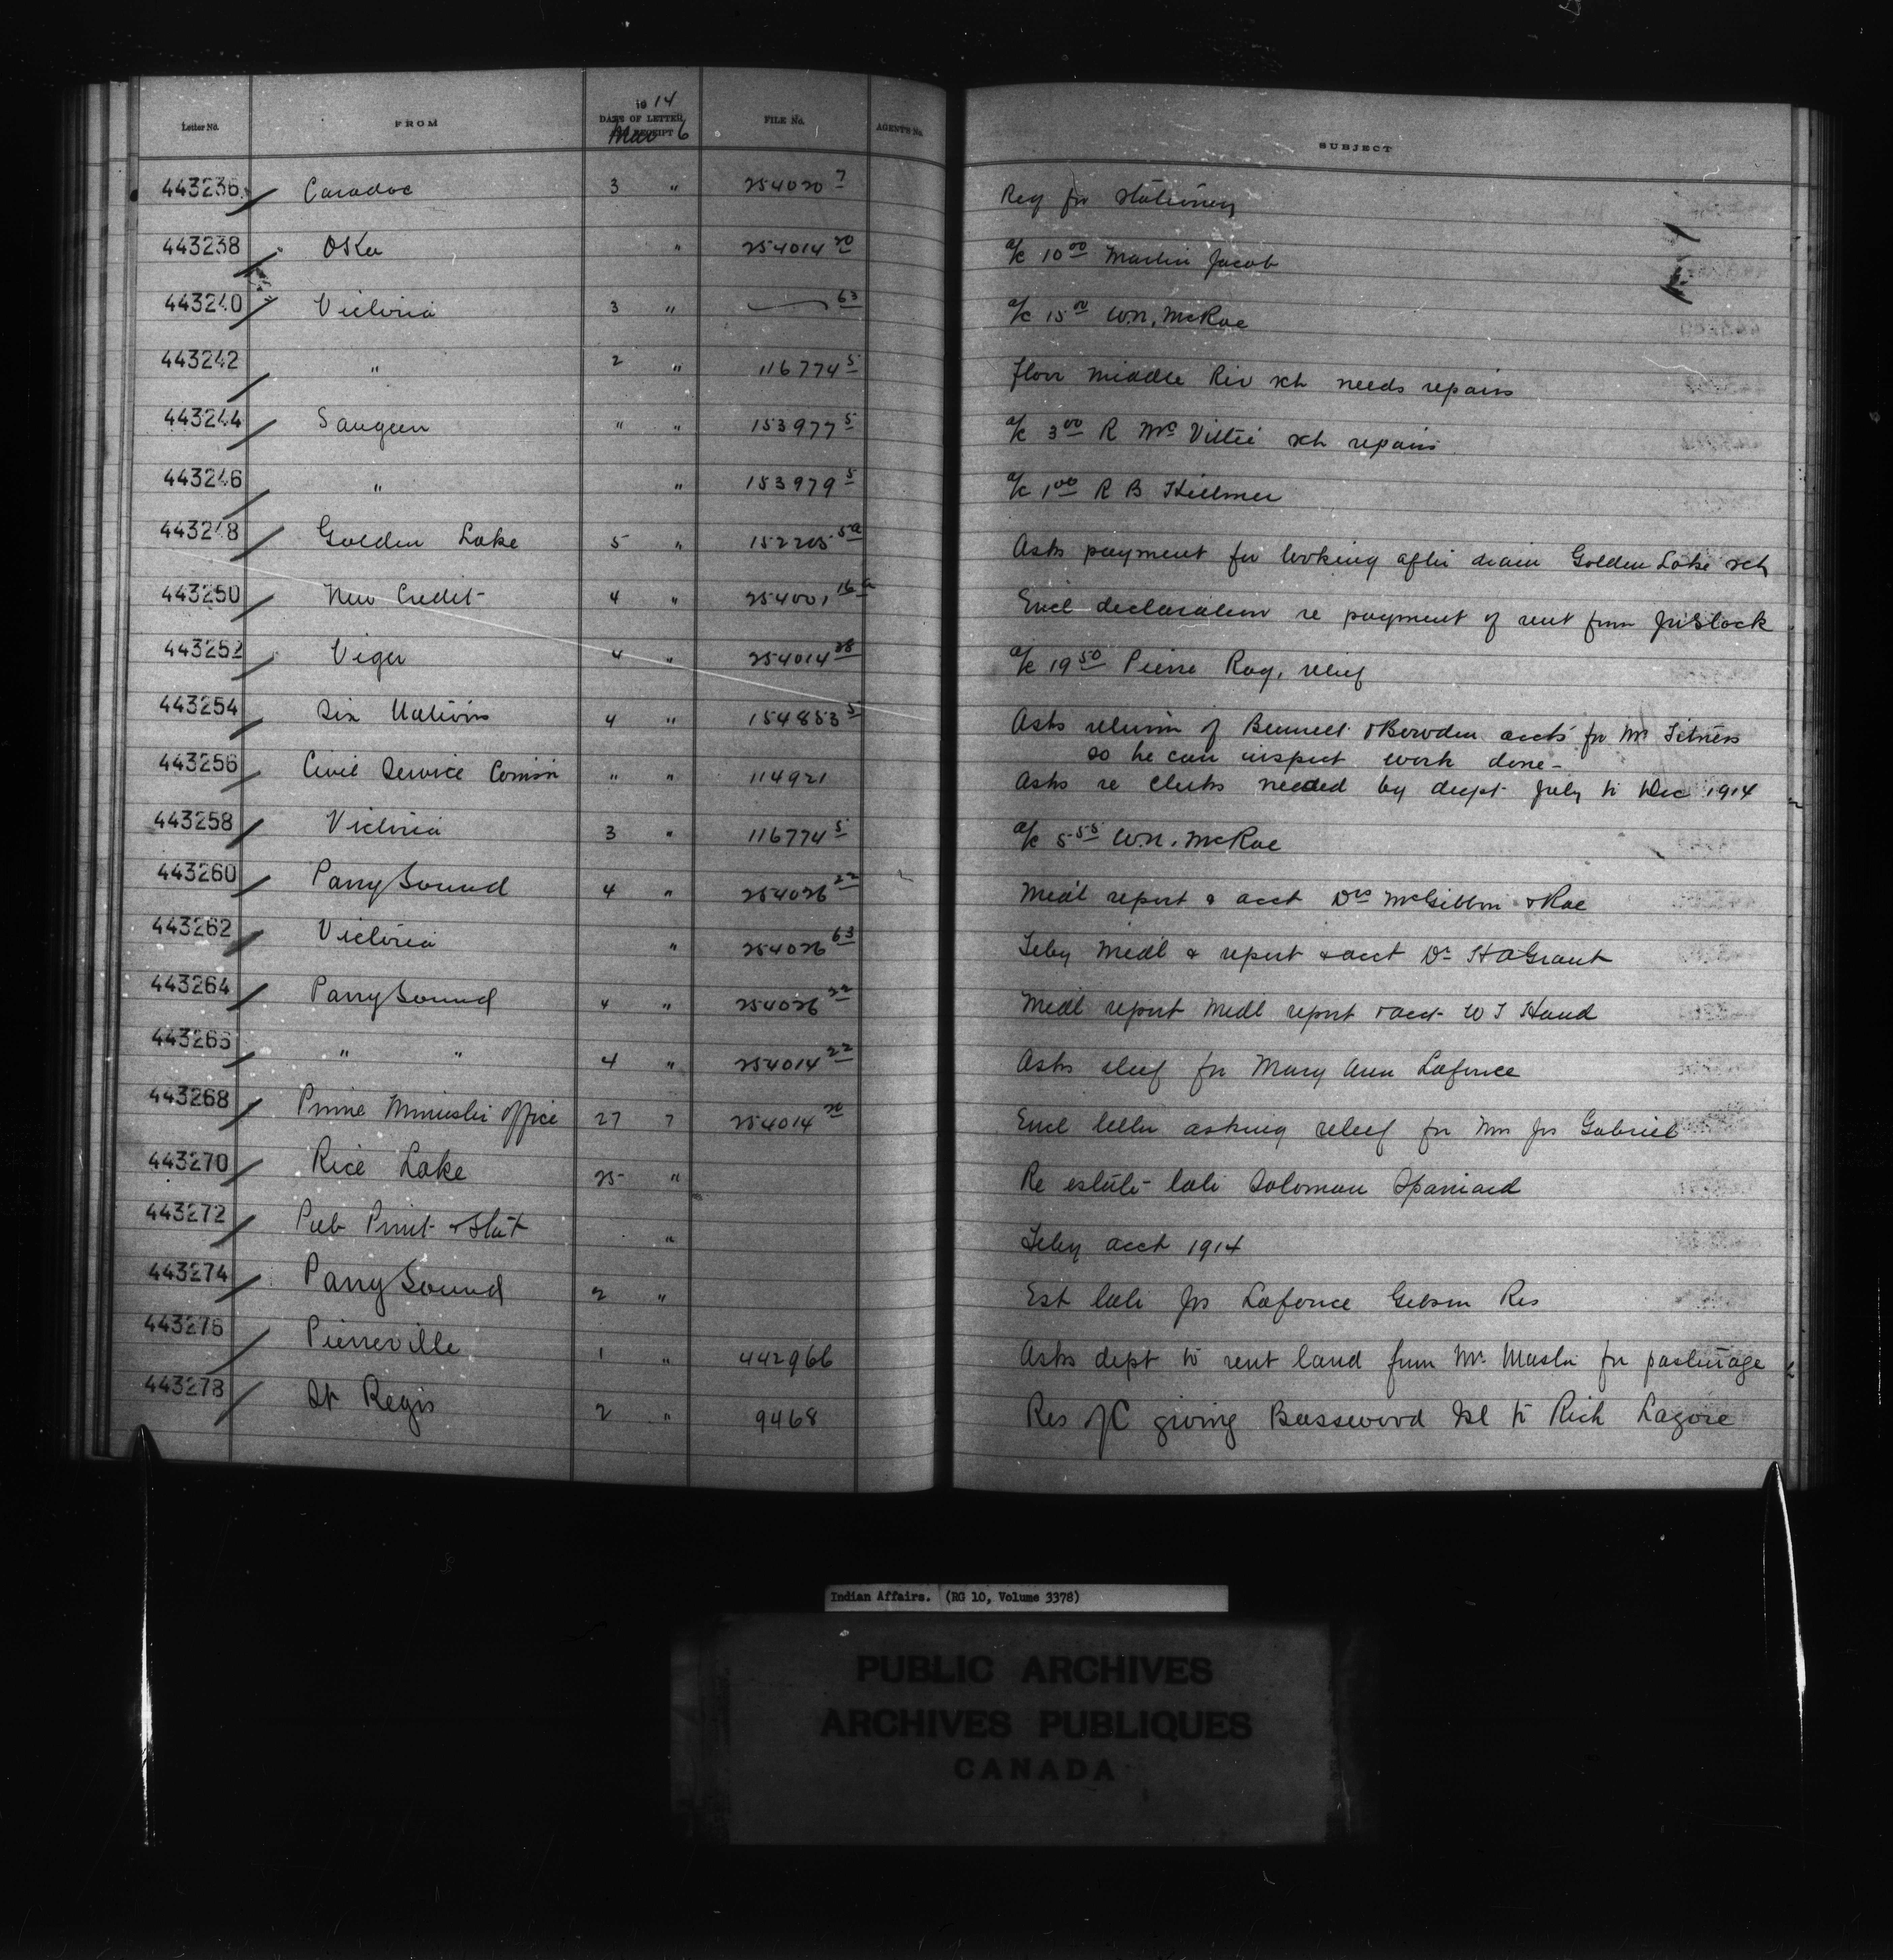 Letter No. FROM 1914 DATE OF LETTER RECEIPT Mar 6 FILE No. AGENTS No. SUBJECT
443236 Caradoc 3 " 254020 7 Req for stationery
443238 Oka " 254014 20 a/c 10 00 Martin Jacob
443240 Victoria 3 " 63 a/c 15 00 W.N. McRae
443242 " 2 " 116774 5 floor Middle Riv sch needs repairs
443244 Saugeen " " 153977 5 a/c 3 00 R Mc Vittie sch repairs
443246 " " 153979 5 a/c 1 00 R B Hillmer
443248 Golden Lake 5 " 152205 5a Asks payment for looking after drain Golden Lake sch
443250 New Credit 4 " 254001 16a Encl declaration re payment of rent from
443252 Viger 4 " 254014 28 a/c 19 50 Pierre Roy, relief
443254 Six Nations 4 " 154853 5 Asks return of Bennett & Bowden accts for Mr
so he can inspect work done -
443256 Civil Service Comisn " " 114921 Asks re clerks needed by dept July to Dec 1914
443258 Victoria 3 " 116774 5 a/c 5 55 W.N. McRae
443260 Parry Sound 4 " 254026 22 Medl report & acct Drs McGibbon & Rae
443262 Victoria " 254026 63 Feby Medl & report & acct Dr H A Grant
443264 Parry Sound 4 " 254026 22 Medl report Medl report & acct W T Hand
443266 " " 4 " 254014 22 Asks relief for Mary Ann Laforce
443268 Prime Minister office 27 7 254014 20 Encl letter asking relief for Mrs Jos Gabriel
443270 Rice Lake 25 " Re estate late Solomon Spaniard
443272 Pub Print & Stat " Feby acct 1914
443274 Parry Sound 2 " Est late Jos Laforce Gibson Res
443276 Pierreville 1 " 442966 Asks dept to rent land from Mr Masta for pasturage
443278 St Regis 2 " 9468 Res of C giving Basswood Isl to Rich Lagore
Indian Affairs. (RG 10, Volume 3378)
PUBLIC ARCHIVES
ARCHIVES PUBLIQUES
CANADA